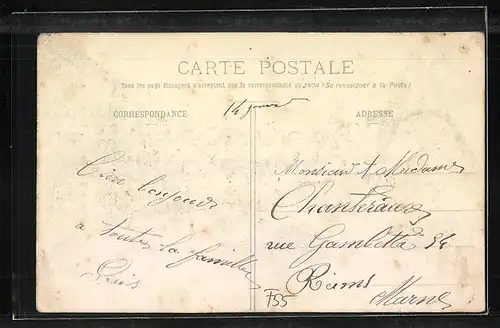 CARTE POSTALE
Tous les pays étrangers n'acceptent pas la correspondance au recto (Se renseigner à la Poste)
CORRESPONDANCE
ADRESSE
14
Bien
a toute la famille
Monsieur & Madame
rue Gambetta 54
Reims
Marne
F55